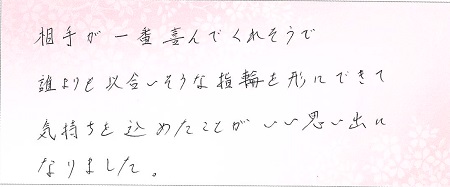 相手が一番喜んでくれそうで
誰よりも似合いそうな指輪を形にできて
気持ちを込めたことがいい思い出に
なりました。